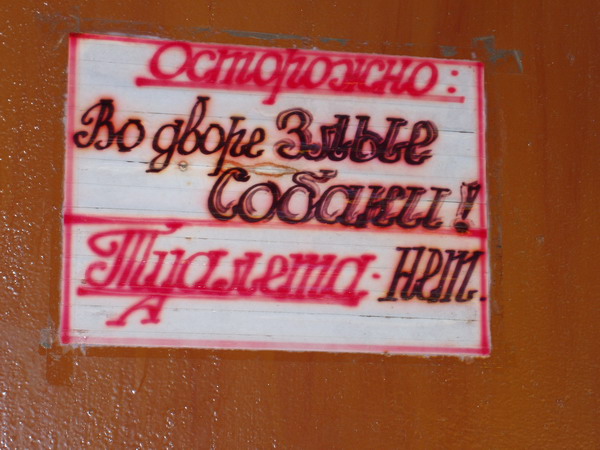 Осторожно:
Во дворе Злые
Собаки!
Туалета - нет.